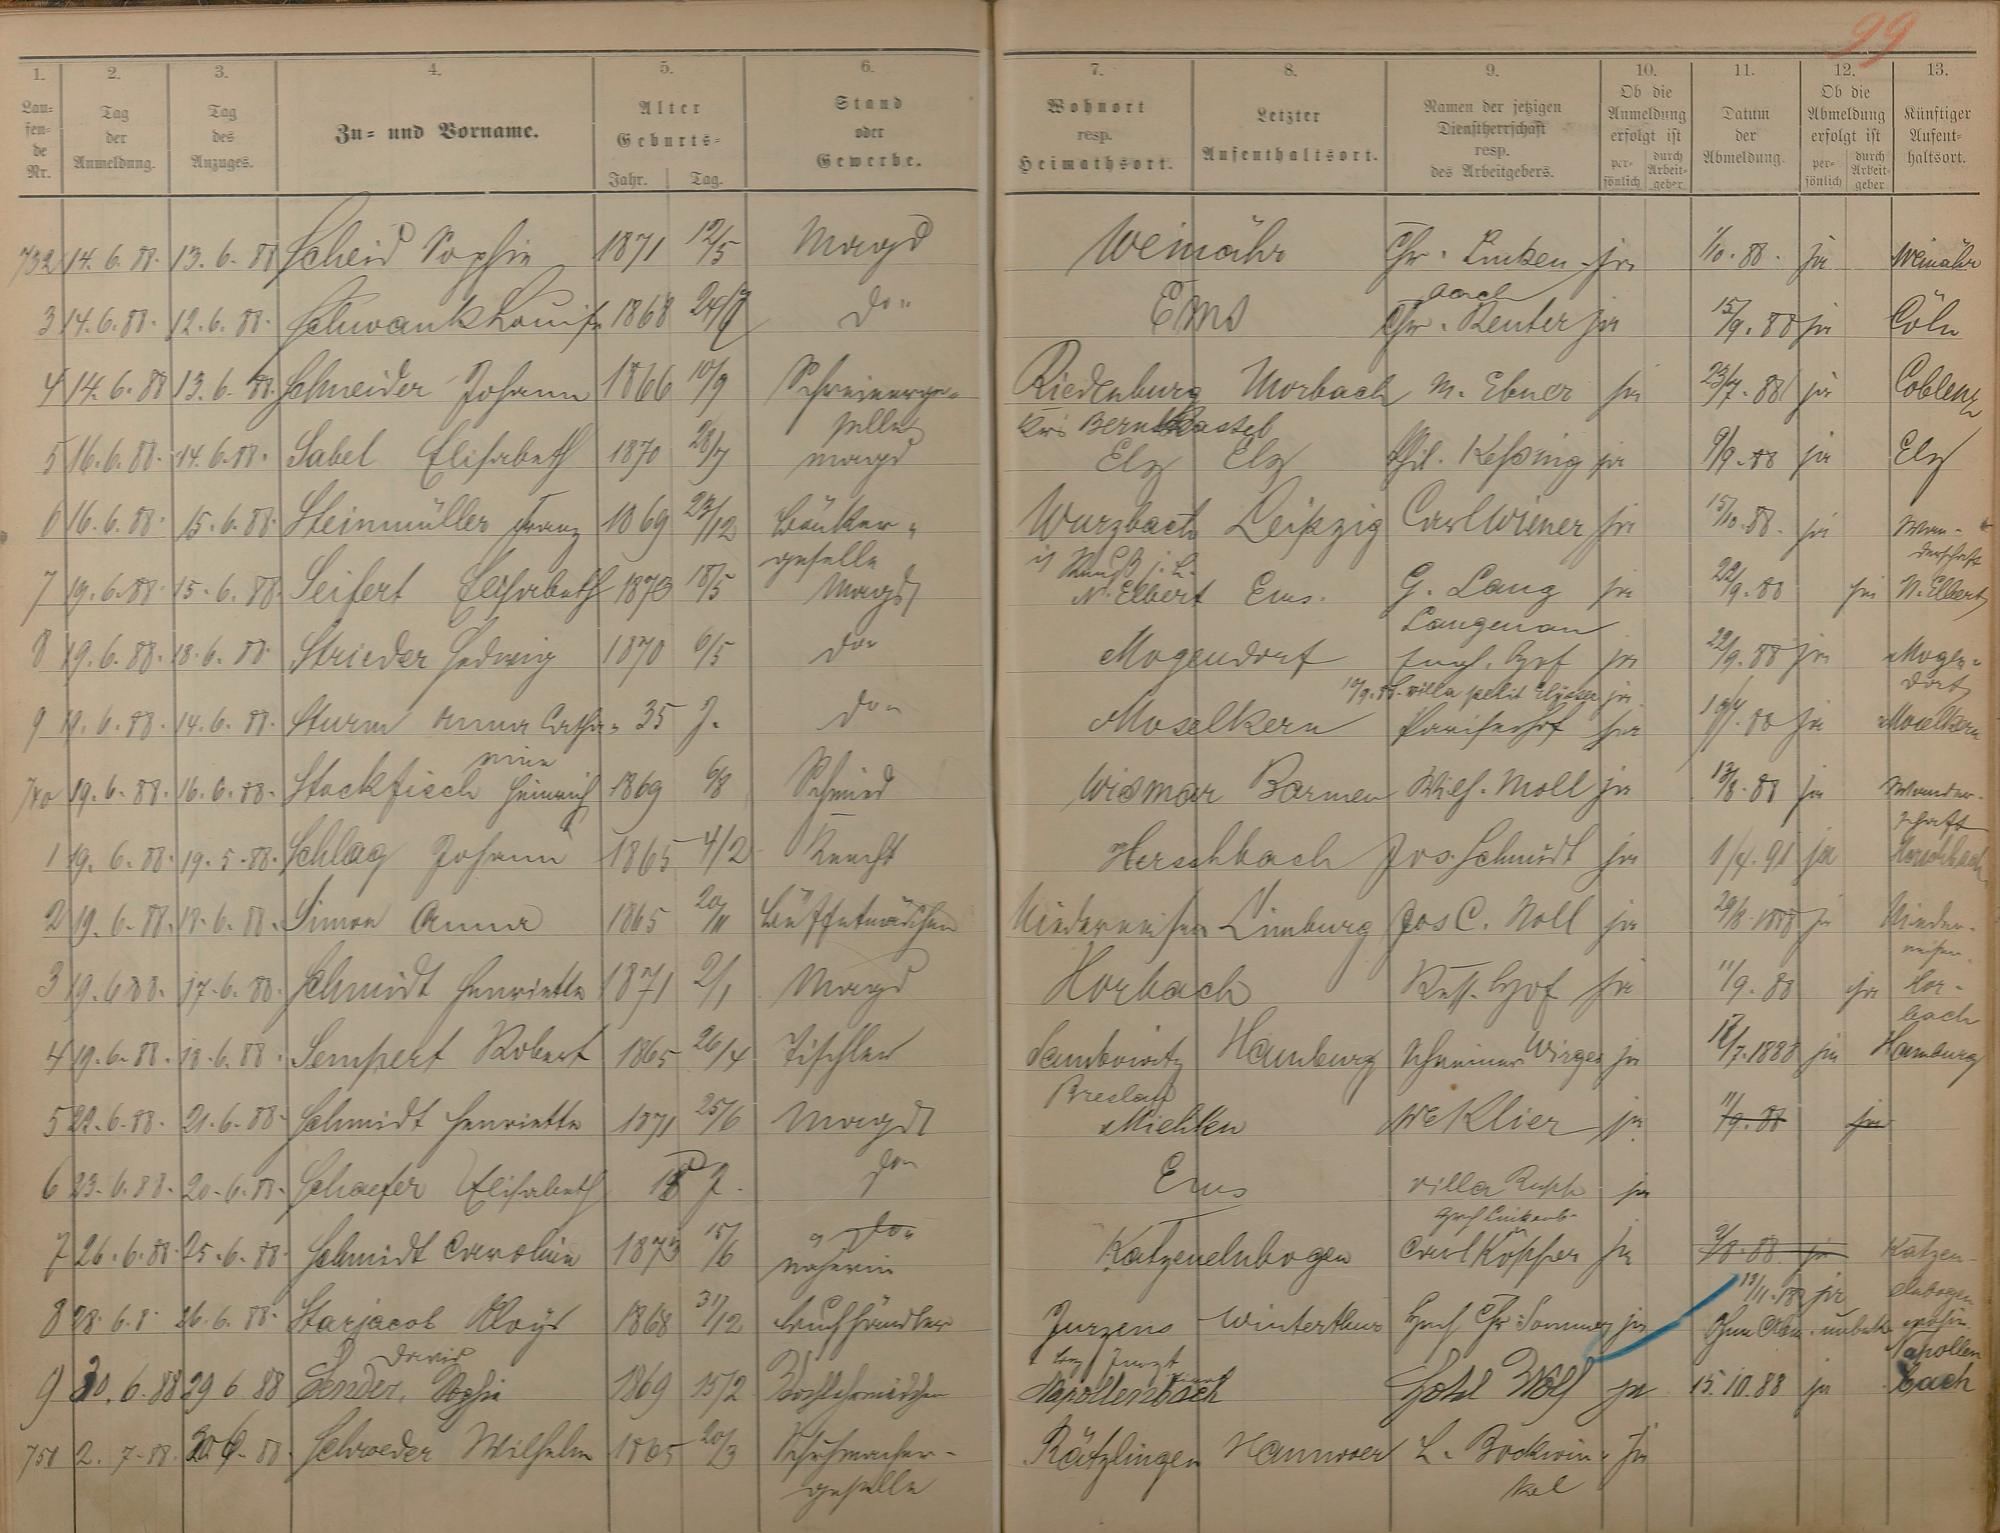 99
1. 2. 3. 4. 5. 6. 7. 8. 9. 10. 11. 12. 13.
Lau=
fen=
de
Nr.
Tag
der
Anmeldung.
Tag
des
Anzuges.
Zu= und Vorname.
Alter
Geburts=
Jahr. Tag.
Stand
oder
Gewerbe.
Wohnort
resp.
Heimathsort.
Letzter
Aufenthaltsort.
Namen der jetzigen
Dienstherrschaft
resp.
des Arbeitgebers.
Ob die
Anmeldung
erfolgt ist
per=
sönlich
durch
Arbeit=
geber
Datum
der
Abmeldung.
Ob die
Abmeldung
erfolgt ist
per=
sönlich
durch
Arbeit=
geber
Künftiger
Aufent=
haltsort.
732 14. 6. 88. 13. 6. 88 Scheid Sophie 1871 12/5 Magd Weinähr Chr. Linken- ja 1/10. 88. ja Weinähr
bach
3 14. 6. 88. 12. 6. 88. Schwank Louise 1868 24/7 do Ems Chr. Reuter ja 15/9. 88 ja Cöln
4 14. 6. 88 13. 6. 88. Schneider Johann 1866 10/9 Schreinerge- Riedenburg Morbach M. Ebner ja 23/7. 88 ja Coblenz
selle Krs Bernkastel
5 16. 6. 88. 14. 6. 88. Sabel Elisabeth 1870 28/7 Magd Elz Elz Phil. Keßing ja 9/9. 88 ja Elz
6 16. 6. 88. 15. 6. 88. Steinmüller Franz 1869 23/12 Bäcker- Wurzbach Leipzig Carl Wiener ja 15/10. 88. ja Wan-
geselle derschaft
7 19. 6. 88. 15. 6. 88. Seifert Elisabeth 1873 18/5 Magd N. Elbert Ems. G. Lang ja 22/9. 88 ja N. Elbert
Langenau
8 19. 6. 88. 18. 6. 88. Strieder Hedwig 1870 6/5 do Mogendorf Engl. Hof ja 22/9. 88 ja Mogen-
dorf
villa petit Elysee ja
9 19. 6. 88. 14. 6. 88. Sturm Anna Catha- 35 J. do Moselkern Pariserhof ja ja Moselkern
rina
740 19. 6. 88. 16. 6. 88. Stockfisch Heinrich 1869 6/8 Schmied Wismar Barmen Wilh. Moll ja 13/8. 88 ja Wander-
schaft
1 19. 6. 88. 19. 5. 88. Schlag Johann 1865 4/2 Knecht Herschbach Jos. Schmidt ja 1/4. 91 ja Herschbach
2 19. 6. 88. 18. 6. 88. Simon Anna 1865 20/11 Büffetmädchen Niederneisen Limburg Jos C. Noll ja 29/8. 1888 ja Nieder-
neisen.
3 19. 6 88. 17. 6. 88. Schmidt Henriette 1871 2/1 Magd Horbach Russ. Hof ja 11/9. 88 ja Hor-
bach
4 19. 6. 88. 18. 6. 88. Sempert Robert 1865 26/4 Tischler Hamburg Schreiner Wirges ja 18/7. 1888 ja Hamburg
Breslau
5 22. 6. 88. 21. 6. 88. Schmidt Henriette 1871 25/6 Magd Miehlen We Klier ja 11/9. 88 ja
6 23. 6. 88. 20. 6. 88. Schaefer Elisabeth J. do Ems Villa Rupp ja
7 26. 6. 88. 25. 6. 88. Schmidt Caroline 1873 15/6 do Katzenelnbogen Carl Köpfer ja ja Katzen-
Näherin elnbogen
8 28. 6. 8. 26. 6. 88. Starjacob Aloys 1868 31/12 Buchhändler Jurzens Winterthur Chr. Sommer ja
9 30. 6. 88 29 6 88 Sender, Sophie 1869 15/2 Napollenbach Hotel Wolf ja 15. 10. 88 ja Napollen
bach
750 2. 7. 88. 30. 6. 88. Schroeder Wilhelm 1865 20/3 Schuhmacher- Rätzlingen Hannover L. Bockwin- ja
geselle kel